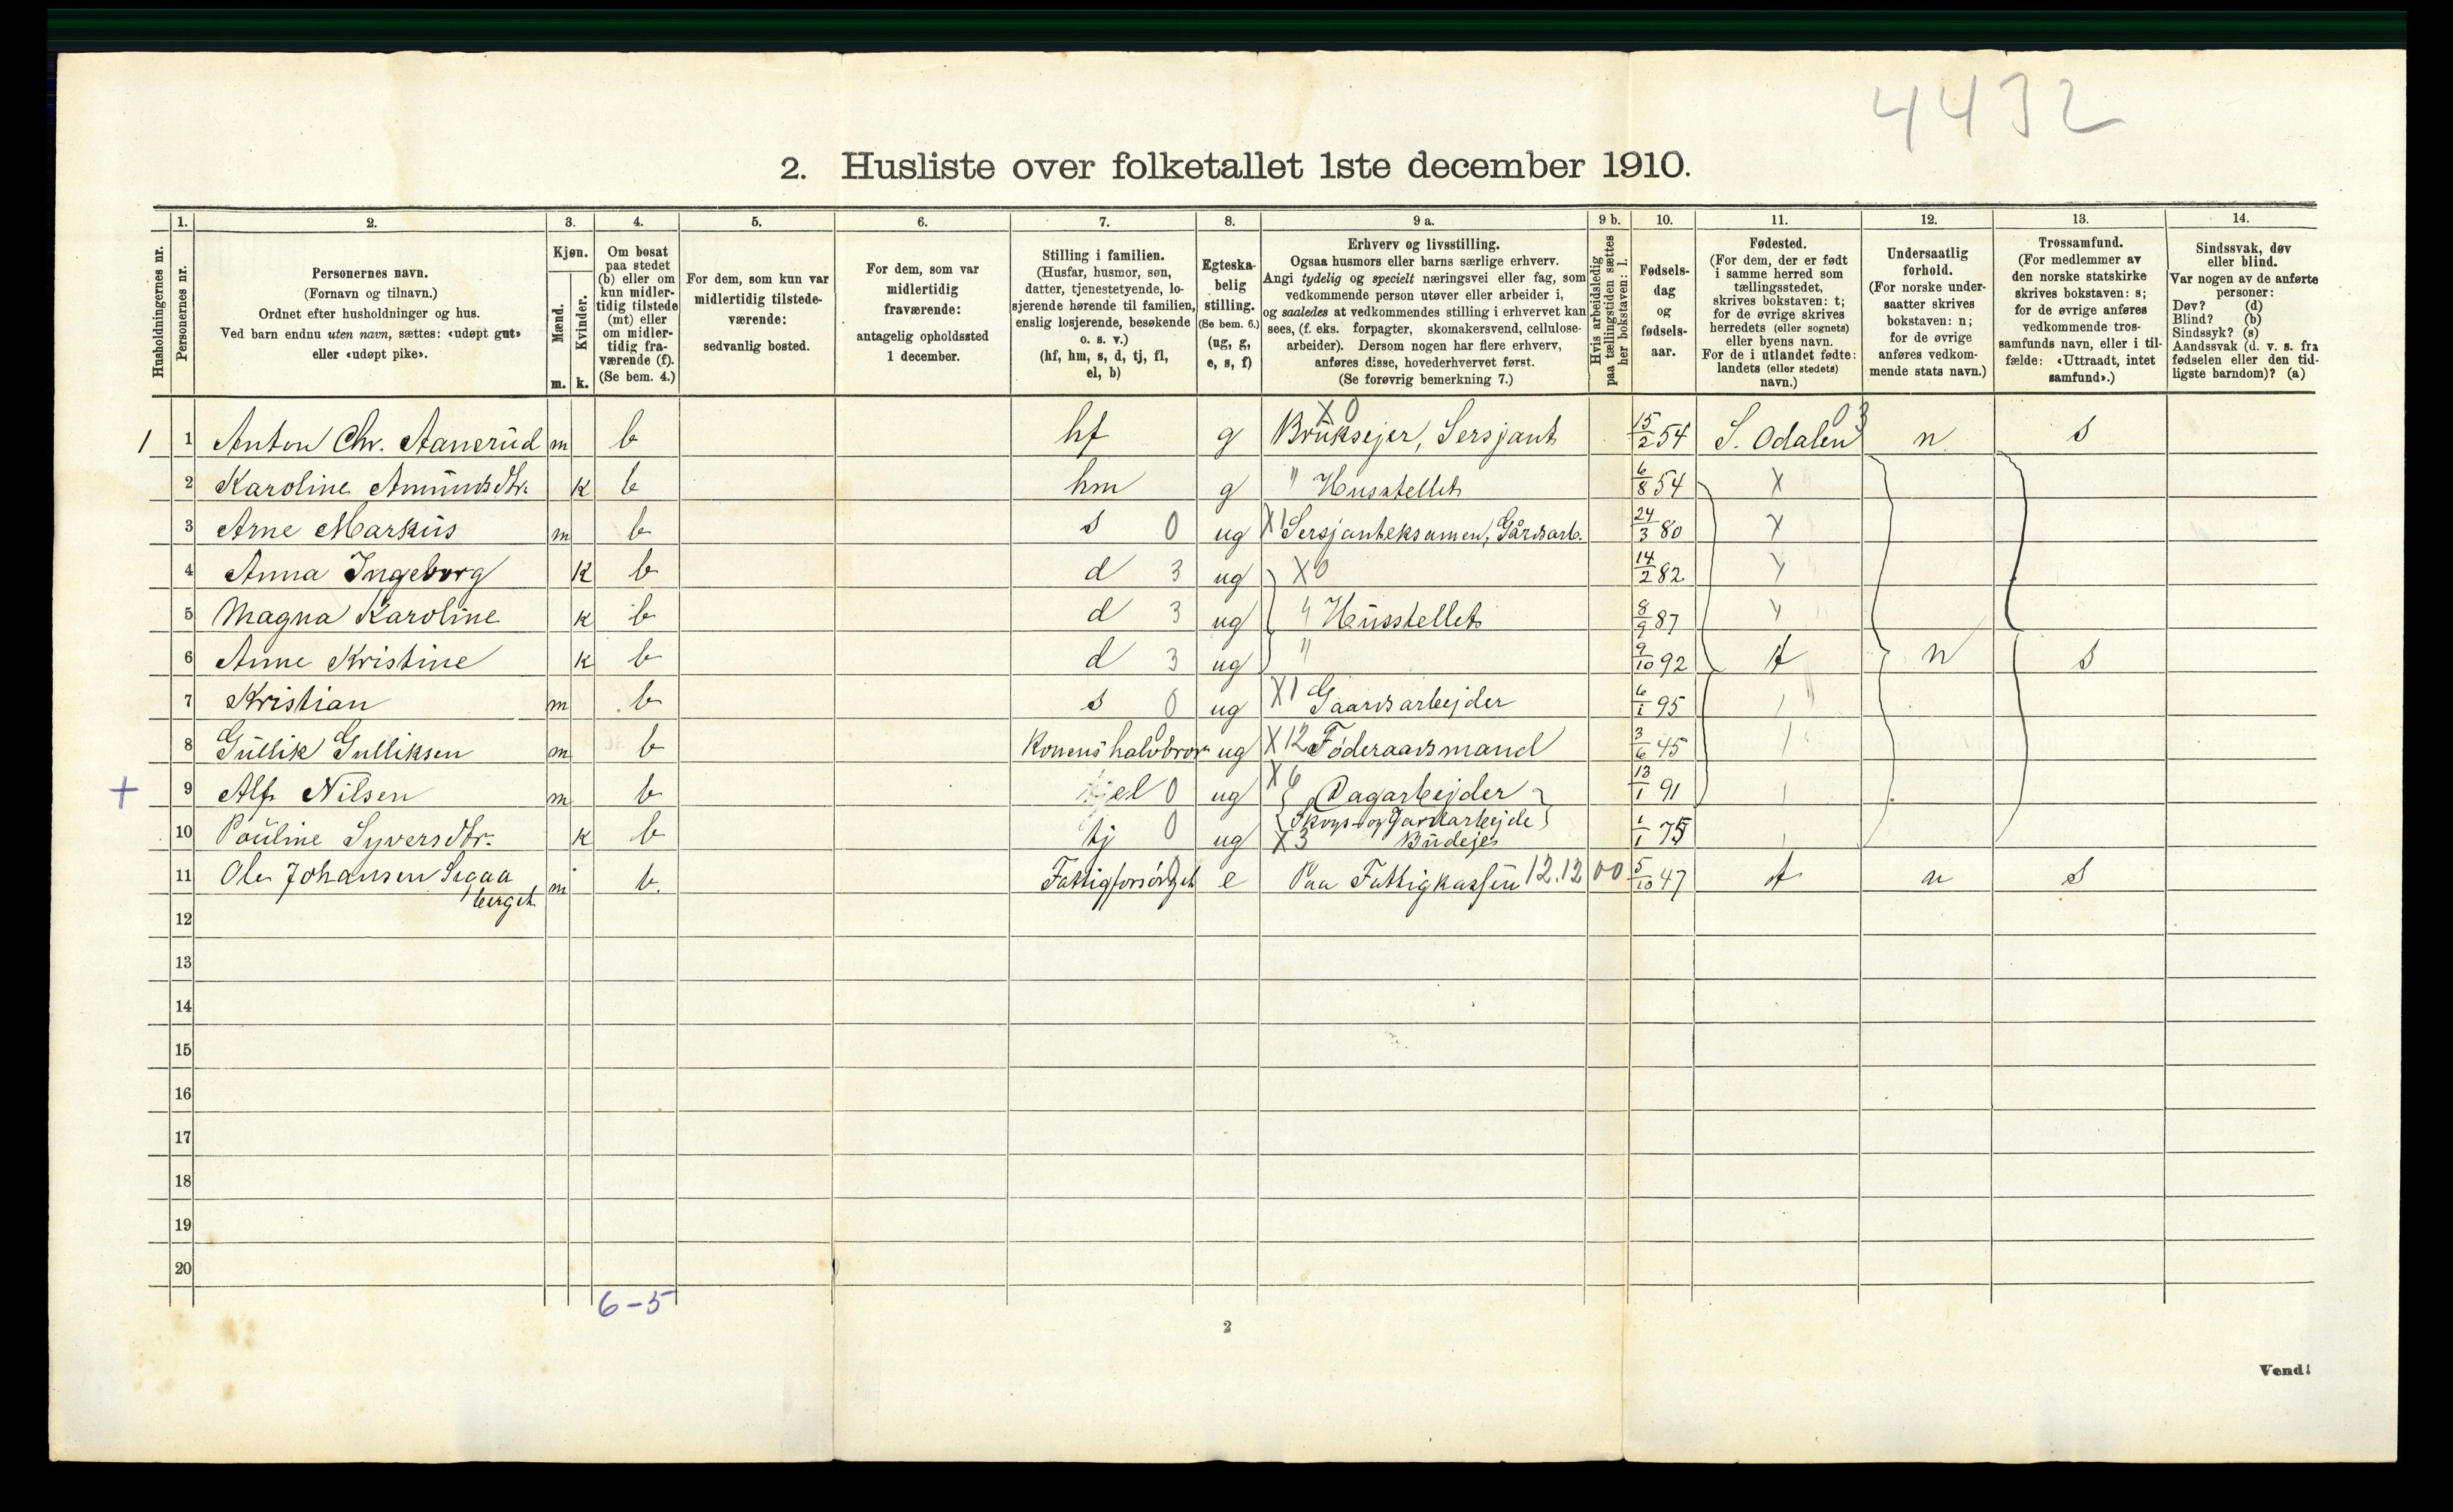 4432
2. Husliste over folketallet 1ste december 1910.
Husholdningernes nr.
1.
Personernes nr.
2.
Personernes navn.
(Fornavn og tilnavn.)
Ordnet efter husholdninger og hus.
Ved barn endnu uten navn, sættes: «udøpt gut»
eller «udøpt pike».
3.
Kjøn.
Mænd.
Kvinder.
m. k.
4.
Om bosat
paa stedet
(b) eller om
kun midler-
tidig tilstede
(mt) eller
om midler-
tidig fra-
værende (f).
(Se bem. 4.)
5.
For dem, som kun var
midlertidig tilstede-
værende:
sedvanlig bosted.
6.
For dem, som var
midlertidig
fraværende:
antagelig opholdssted
1 december.
7.
Stilling i familien.
(Husfar, husmor, søn,
datter, tjenestetyende, lo-
sjerende hørende til familien,
enslig losjerende, besøkende
o. s. v.)
(hf, hm, s, d, tj, fl,
el, b)
8.
Egteska-
belig
stilling.
(Se bem. 6.)
(ug, g,
e, s, f)
9 a.
Erhverv og livsstilling.
Ogsaa husmors eller barns særlige erhverv.
Angi tydelig og specielt næringsvei eller fag, som
vedkommende person utøver eller arbeider i,
og saaledes at vedkommendes stilling i erhvervet kan
sees, (f. eks. forpagter, skomakersvend, cellulose-
arbeider). Dersom nogen har flere erhverv,
anføres disse, hovederhvervet først.
(Se forøvrig bemerkning 7.)
9 b.
Hvis arbeidsledig
paa tællingstiden sættes
her bokstaven: l.
10.
Fødsels-
dag
og
fødsels-
aar.
11.
Fødested.
(For dem, der er født
i samme herred som
tællingsstedet,
skrives bokstaven: t;
for de øvrige skrives
herredets (eller sognets)
eller byens navn.
For de i utlandet fødte:
landets (eller stedets)
navn.)
12.
Undersaatlig
forhold.
(For norske under-
saatter skrives
bokstaven: n;
for de øvrige
anføres vedkom-
mende stats navn.)
13.
Trossamfund.
(For medlemmer av
den norske statskirke
skrives bokstaven: s;
for de øvrige anføres
vedkommende tros-
samfunds navn, eller i til-
fælde: «Uttraadt, intet
samfund».)
14.
Sindssvak, døv
eller blind.
Var nogen av de anførte
personer:
Døv? (d)
Blind? (b)
Sindssyk? (s)
Aandssvak (d. v. s. fra
fødselen eller den tid-
ligste barndom)? (a)
1 1 Anton Chr. Aanerud m b hf g X0 Bruksejer, Sersjant 15/2 54 S. Odalen 03 n s
2 Karoline Amundsdtr. k b hm g " Husstellet 6/8 54 X
3 Arne Markus m b s 0 ug X1 Sersjanteksamen, Gårdsarb. 24/3 80 X
4 Anna Ingeborg k b d 3 ug X0 14/2 82
5 Magna Karoline k b d 3 ug " Husstellet 8/9 87
6 Anne Kristine k b d 3 ug " 9/10 92 t n s
7 Kristian m b s 0 ug X1 Gaardsarbejder 6/1 95
8 Gullik Gulliksen m b Konens halvbror ug X12 Føderaadsmand 3/6 45
+ 9 Alf Nilsen m b el 0 ug X6 { Dagarbejder
Skogs- og Gardarbejde } 13/1 91
10 Pouline Syversdtr. k b tj 0 ug X3 Budeje 1/1 75
11 Ole Johansen
berget m b. Fattigforsørget e Paa Fattigkassen 12.12 00 5/10 47 t n s
12
13
14
15
16
17
18
19
20
6-5
2
Vend!